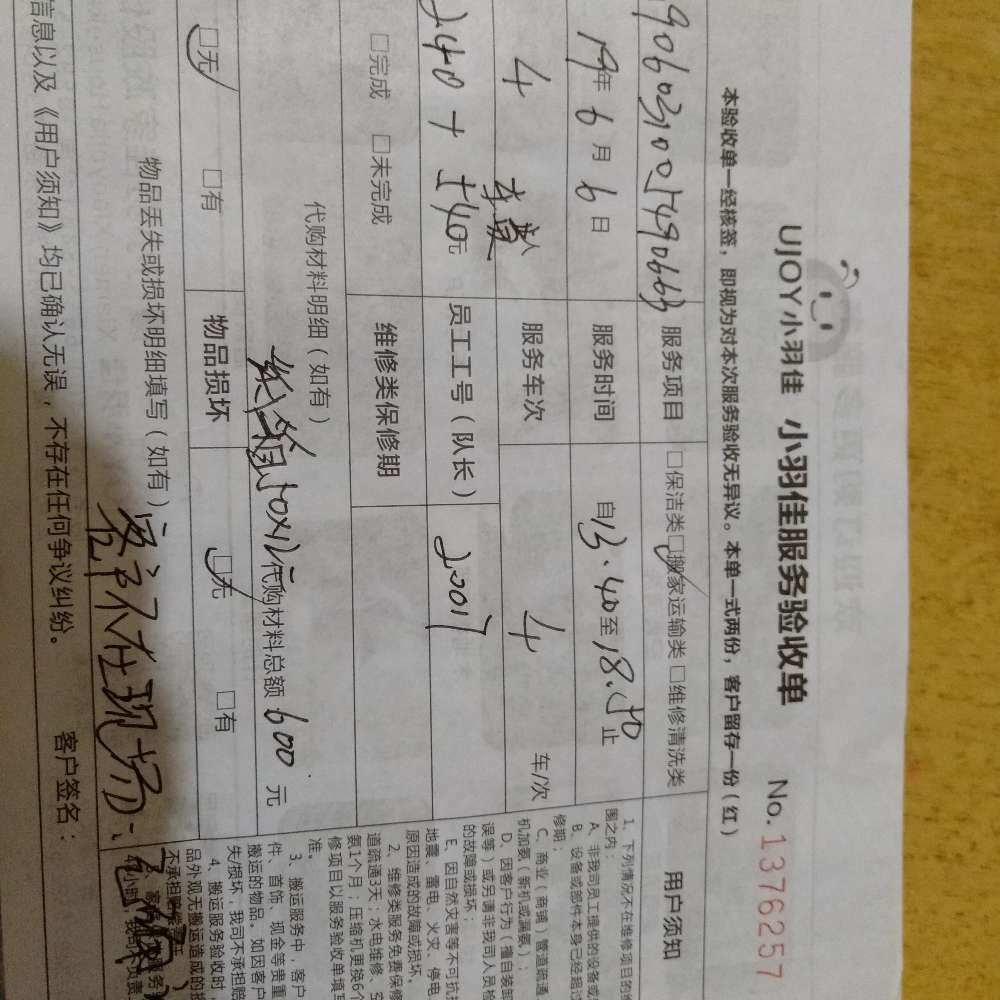 UJOY小羽佳 小羽佳服务验收单 No. 1376257
本验收单一经核签，即视为对本次服务验收无异议。本单一式两份，客户留存一份（红）
服务项目 □保洁类 □搬家运输类 □维修清洗类
19年6月6日 服务时间 自13.40至18.50止
4 服务车次 4 车/次
240+540元 员工工号（队长） 2007
□完成 □未完成 维修类保修期
代购材料明细（如有）
纸箱50x12 代购材料总额 600 元
□无 □有 物品损坏 □无 □有
物品丢失或损坏明细填写（如有）
客户不在现场
信息以及《用户须知》均已确认无误，不存在任何争议纠纷。 客户签名：
用户须知
1、下列情况不在维修项目的
围之内：
A、非我司员工提供的设备或
B、设备或部件本身已经超过
修期；
C、商业（商铺）管道疏通
机加氨（新机或漏氨）；
D、因客户行为（擅自装卸
误等）或另请非我司人员检
的故障或损坏；
E、因自然灾害等不可抗
地震、雷电、火灾、停电
原因造成的故障或损坏。
2、维修类服务免费保修
道疏通3天；水电维修、空
氨1个月；压缩机更换6个
修项目以服务验收单填写
准。
3、搬运服务中，客户
件、首饰、现金等贵重
搬运的物品。如因客户
失/损坏，我司不承担赔
4、搬运服务验收时，
品外观无搬运造成的损
不承担赔偿责任